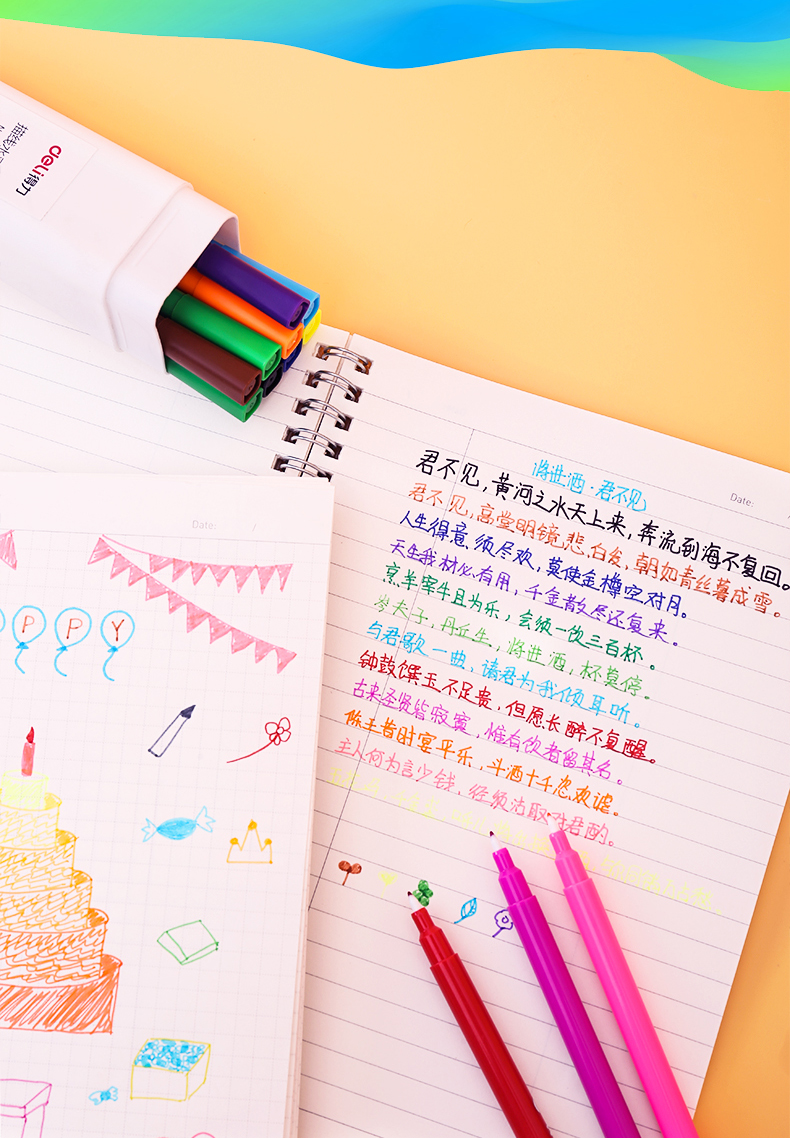 deli得力
描线水
将进酒·君不见
Date:
君不见，黄河之水天上来，奔流到海不复回。
君不见，高堂明镜悲白发，朝如青丝暮成雪。
人生得意须尽欢，莫使金樽空对月。
天生我材必有用，千金散尽还复来。
烹羊宰牛且为乐，会须一饮三百杯。
岑夫子，丹丘生，将进酒，杯莫停。
与君歌一曲，请君为我倾耳听。
钟鼓馔玉不足贵，但愿长醉不复醒。
古来圣贤皆寂寞，惟有饮者留其名。
陈王昔时宴平乐，斗酒十千恣欢谑。
主人何为言少钱，径须沽取对君酌。
Date: /
PPY